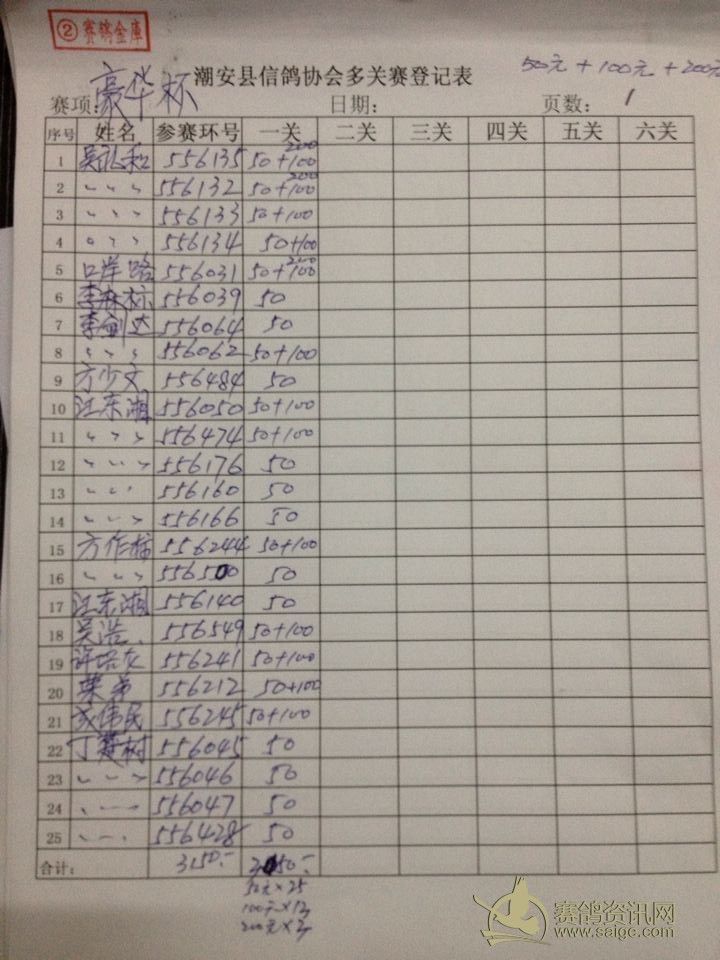 ② 赛鸽金库
潮安县信鸽协会多关赛登记表
50元+100元+200元
赛项: 豪华杯 日期: 页数: 1
序号 姓名 参赛环号 一关 二关 三关 四关 五关 六关
1 吴礼和 556135 50+100 200
2 〃 〃 〃 556132 50+100 200
3 〃 〃 〃 556133 50+100
4 〃 〃 〃 556134 50+100
5 口岸路 556031 50+100 200
6 李林标 556039 50
7 李剑达 556064 50
8 〃 〃 〃 556062 50+100
9 方少文 556484 50
10 江东湘 556050 50+100
11 〃 〃 〃 556474 50+100
12 〃 〃 〃 556176 50
13 〃 〃 〃 556160 50
14 〃 〃 〃 556166 50
15 方作标 556244 50+100
16 〃 〃 〃 556500 50
17 江东湘 556140 50
18 吴浩 556549 50+100
19 许 556241 50+100
20 弟 556212 50+100
21 伟民 556245 50+100
22 丁楚树 556045 50
23 〃 〃 〃 556046 50
24 〃 〃 〃 556047 50
25 〃 〃 〃 556428 50
合计: 3150.- 50.-
50元×25
100元×12
200元×
赛鸽资讯网
www.saigc.com